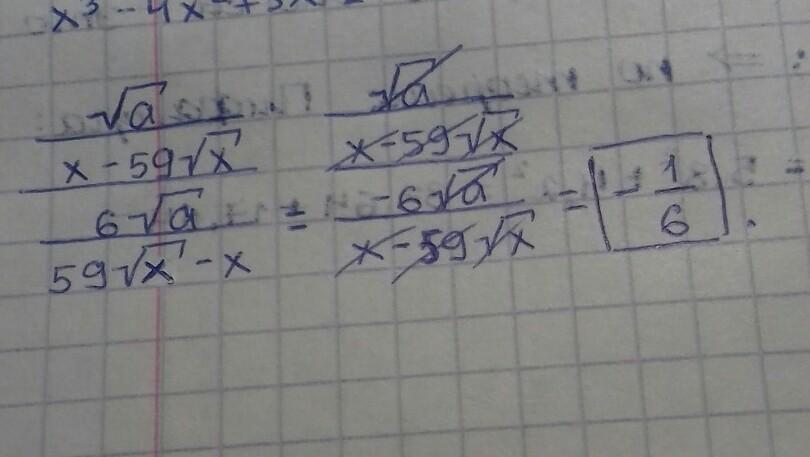 x³ - 4x² + 3x
√a / (x - 59√x) / (6√a / (59√x - x)) = √a / (x - 59√x) / (-6√a / (x - 59√x)) = - 1/6.